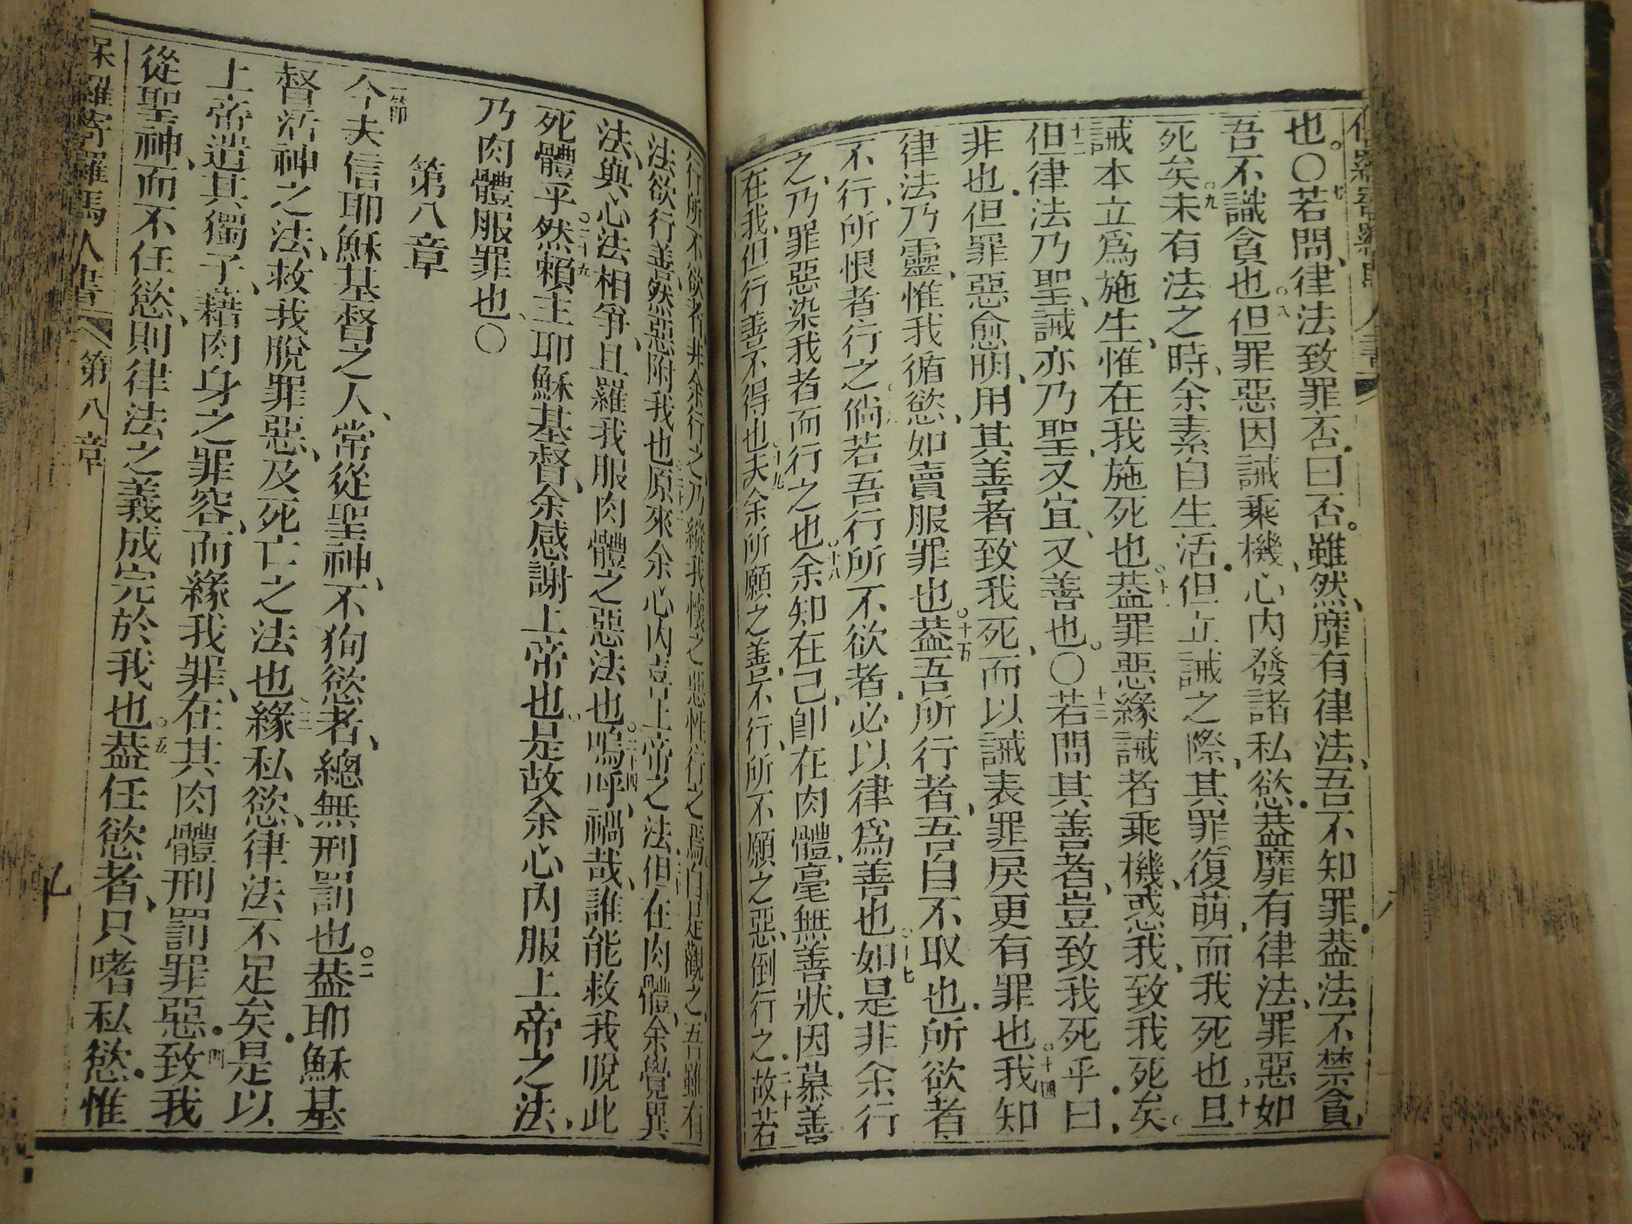 也。〇七若問、律法致罪否、曰否。雖然、靡有律法、吾不知罪、蓋法不禁貪、
吾不識貪也。八但罪惡因誡乘機、心內發諸私慾、蓋靡有律法、罪惡如
死矣。九未有法之時、余素自生活、但立誡之際、其罪復萌、而我死也。十且
誡本立爲施生、惟在我施死也。十一蓋罪惡緣誡者乘機、惑我、致我死矣。
十二但律法乃聖、誡亦乃聖、又宜、又善也。〇十三若問其善者、豈致我死乎、曰、
非也、但罪惡愈明、用其善者致我死、而以誡表罪戾更有罪也。十四我知
律法乃靈、惟我循慾、如賣服罪也。十五蓋吾所行者、吾自不取也、所欲者
不行、所恨者行之。倘若吾行所不欲者、必以律爲善也。十七如是非余行
之、乃罪惡染我者而行之也。十八余知在己、卽在肉體、毫無善狀、因慕善
在我、但行善不得也。十九夫余所願之善、不行、所不願之惡、倒行之。二十故若
行所不欲者、非余行之、乃纏我懷之惡性行之焉。由是觀之、吾雖有
法欲行善、然惡附我也。原來余心內喜上帝之法、但在肉體、余覺異
法、與心法相爭、且羅我服肉體之惡法也。二十四嗚呼禍哉、誰能救我脫此
死體乎。二十五然賴主耶穌基督、余感謝上帝也。是故余心內服上帝之法、
乃肉體服罪也。〇
第八章
一節今夫信耶穌基督之人、常從聖神、不狥慾者、總無刑罰也。二蓋耶穌基
督活神之法、救我脫罪惡、及死亡之法也。三緣私慾、律法不足矣、是以
上帝遣其獨子、藉肉身之罪容、而緣我罪、在其肉體刑罰罪惡、四致我
從聖神、而不任慾、則律法之義成完於我也。五蓋任慾者、只嗜私慾、惟
保羅寄羅馬人書 第八章